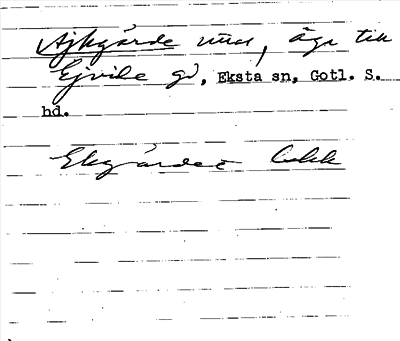 Ajkgårde mad, äga till
Ejvide gd, Eksta sn, Gotl. S.
hd.
Ekgårdet